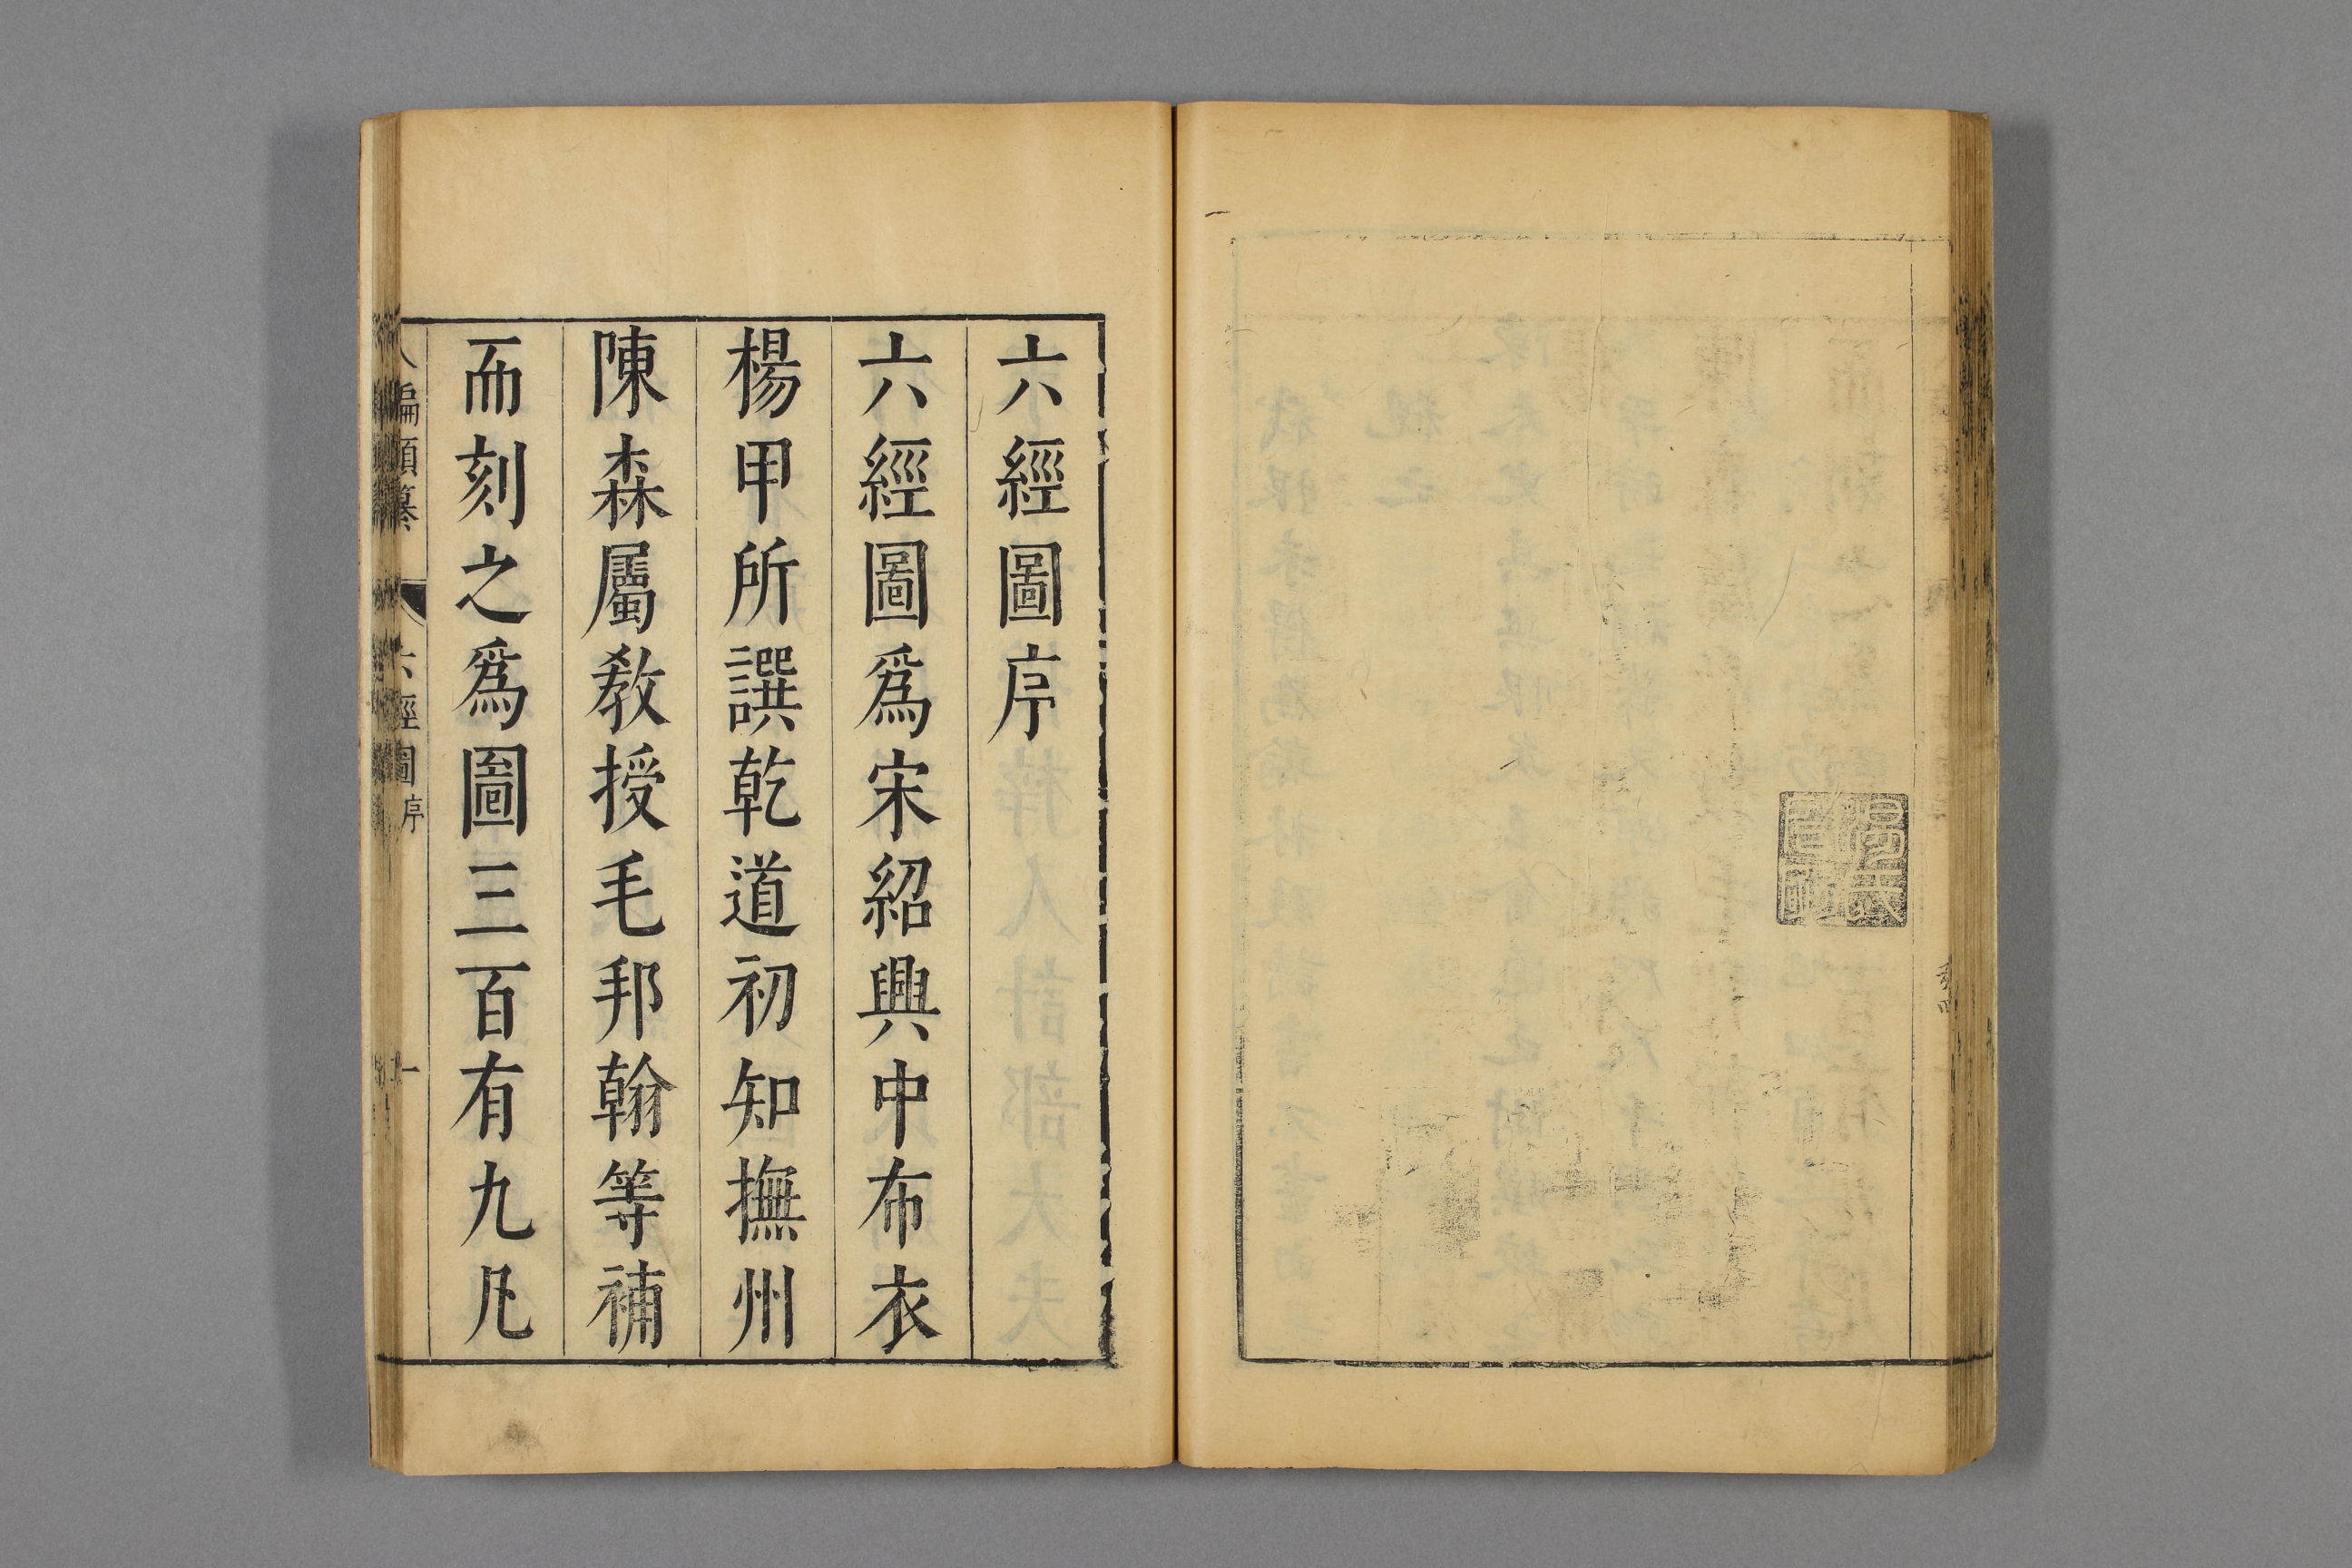 六經圖序
六經圖爲宋紹興中布衣
楊甲所譔乾道初知撫州
陳森屬教授毛邦翰等補
而刻之爲圖三百有九凡
八編類纂 六經圖序 一